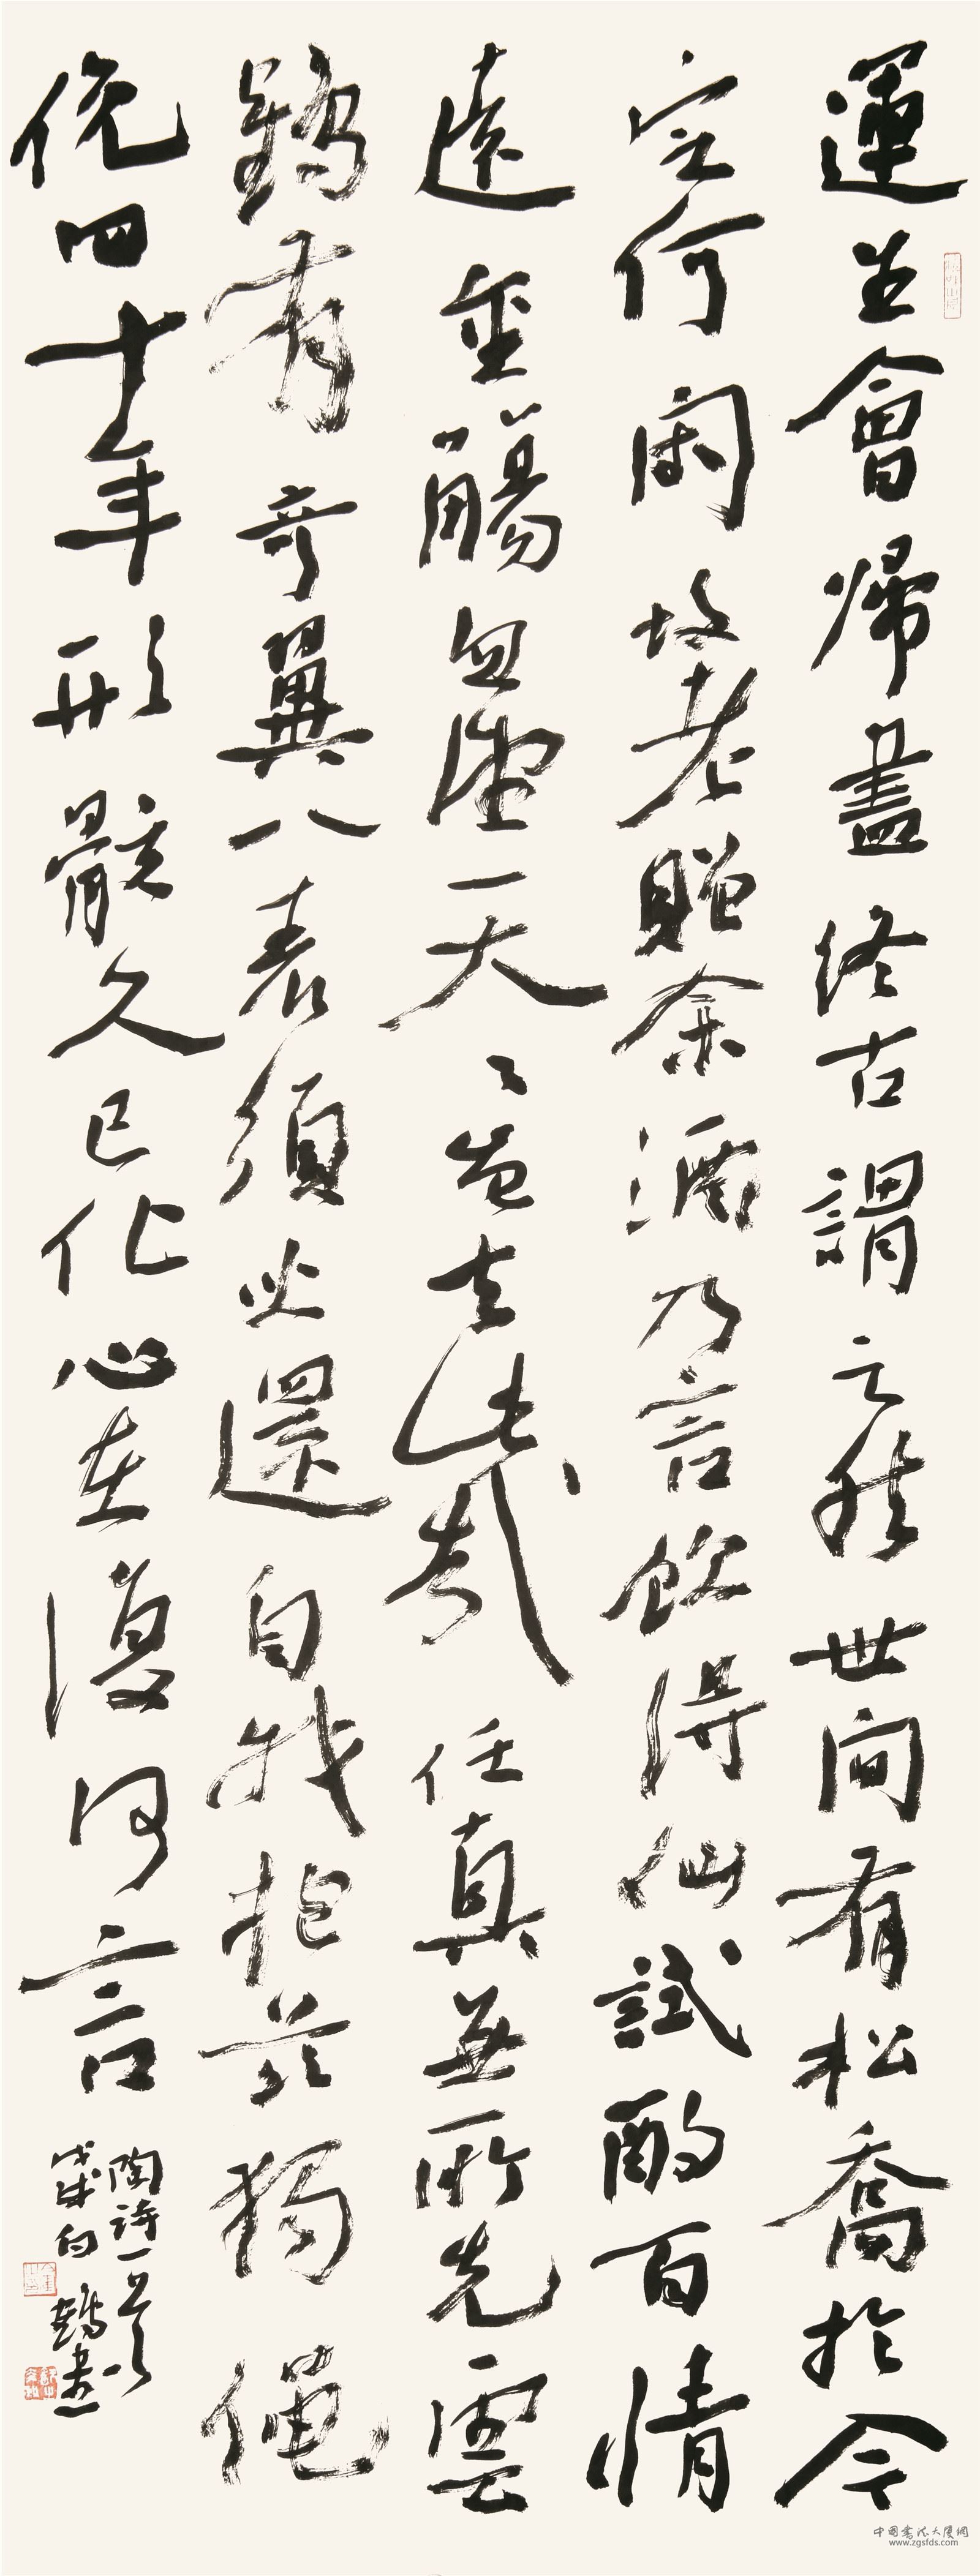 運生會歸盡終古謂之然世間有松喬於今
定何聞故老贈余酒乃言飲得仙試酌百情
遠重觴忽忘天天豈去此哉任真無所先雲
鶴有奇翼八表須臾還自我抱茲獨僶
俛四十年形骸久已化心在復何言
陶詩一首
戊戌白鶴書
中国書法大厦網
www.zgsfds.com